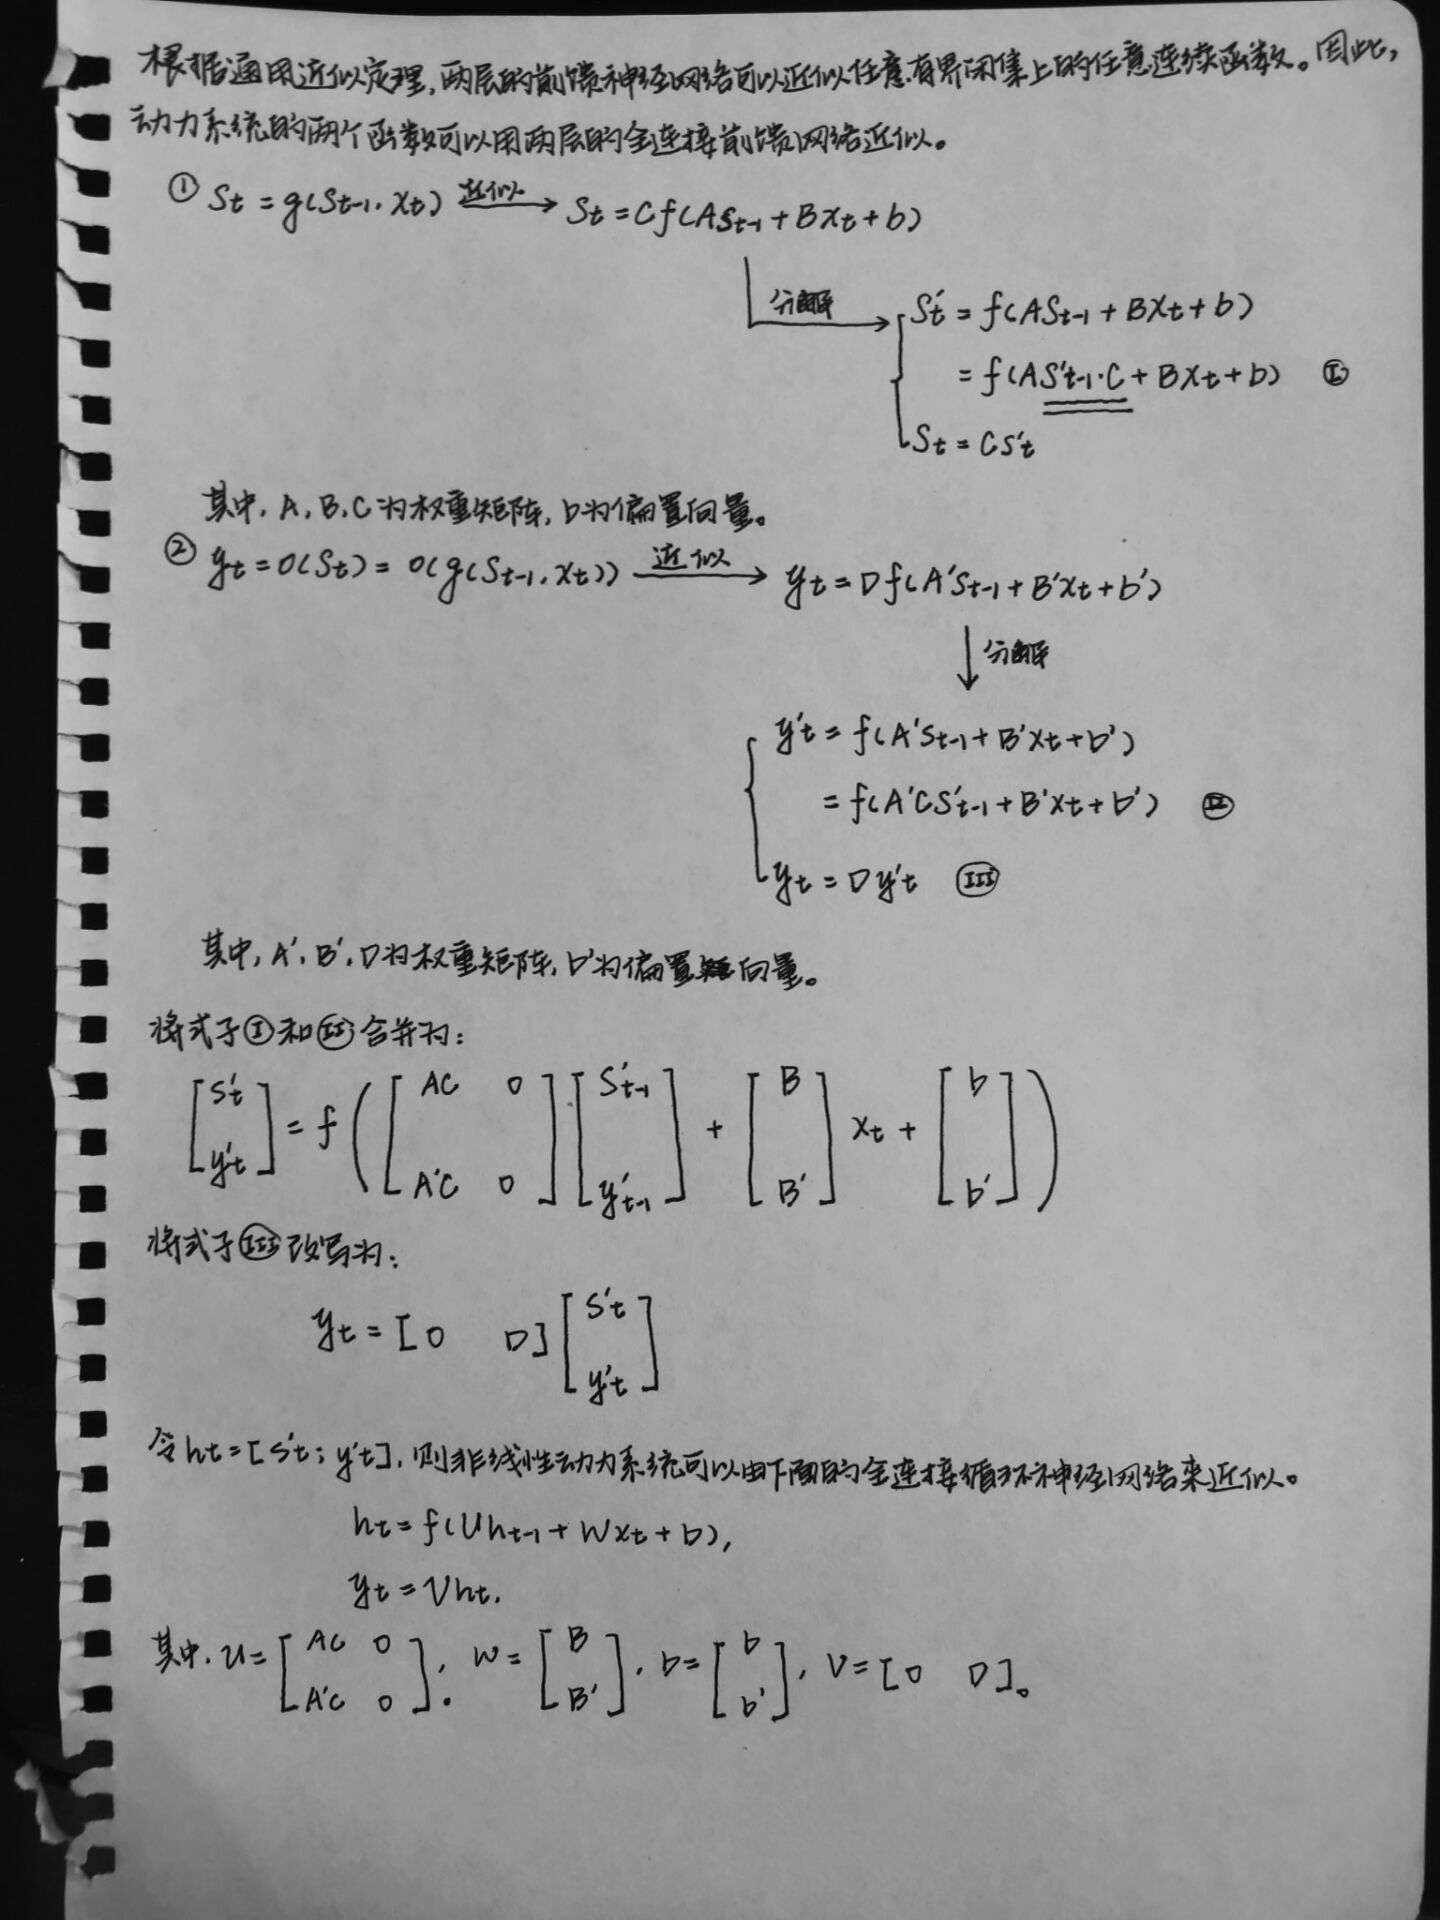 根据通用近似定理,两层的前馈神经网络可以近似任意有界闭集上的任意连续函数。因此,
动力系统的两个函数可以用两层的全连接前馈网络近似。
① St = g(St-1, xt) 近似→ St = Cf(ASt-1 + Bxt + b)
分解→ S't = f(ASt-1 + Bxt + b)
= f(AS't-1·C + Bxt + b) Ⅰ
St = CS't
其中, A, B, C为权重矩阵, b为偏置向量。
② yt = O(St) = O(g(St-1, xt)) 近似→ yt = Df(A'St-1 + B'xt + b')
↓分解
y't = f(A'St-1 + B'xt + b')
= f(A'CS't-1 + B'xt + b') Ⅱ
yt = Dy't Ⅲ
其中, A', B', D为权重矩阵, b'为偏置向量。
将式子Ⅰ和Ⅱ合并为:
[S't y't] = f([AC 0 A'C 0][S't-1 y't-1] + [B B']xt + [b b'])
将式子Ⅲ改写为:
yt = [0 D][S't y't]
令ht=[S't; y't], 则非线性动力系统可以由下面的全连接循环神经网络来近似。
ht = f(Uht-1 + Wxt + b),
yt = Vht.
其中, U=[AC 0 A'C 0], W=[B B'], b=[b b'], V=[0 D]。